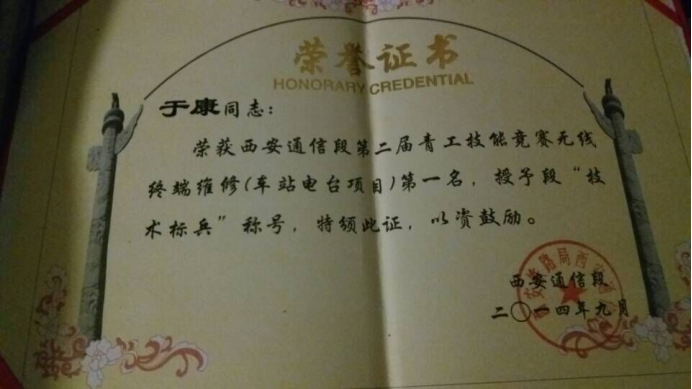 荣誉证书
HONORARY CREDENTIAL
于康同志：
荣获西安通信段第二届青工技能竞赛无线
终端维修(车站电台项目)第一名，授予段“技
术标兵”称号，特颁此证，以资鼓励。
西安通信段
二〇一四年九月